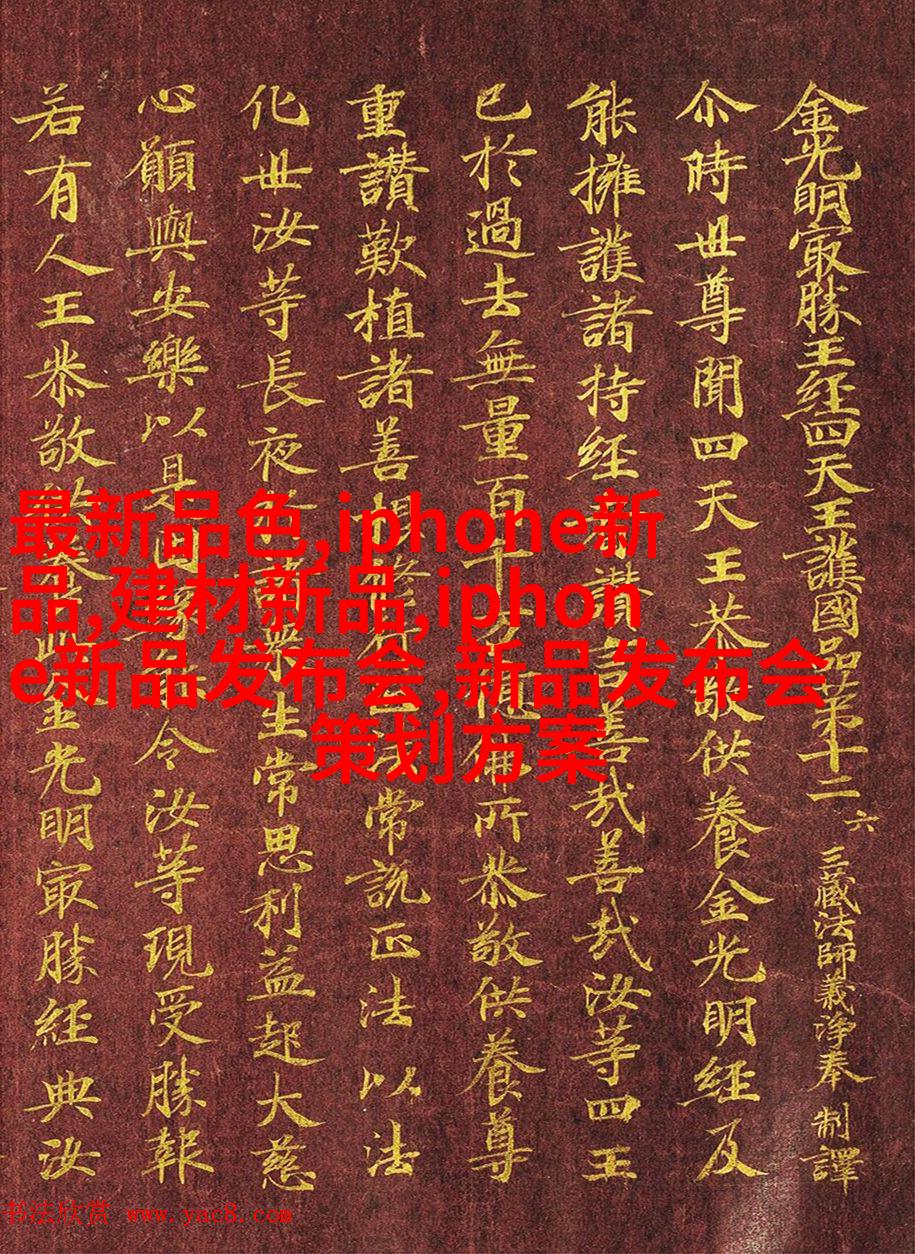 金光明㝡勝王経四天王護國品第十二 六 三藏法師義淨奉 制譯
尒時世尊聞四天王恭敬供養金光明経及
能擁護諸持経讚言善哉善哉汝等四王
已於過去無量百千佛所恭敬供養尊
重讚歎植諸善根修行正法常說正法以法
化世汝等長夜諸衆生常思利益起大慈
心願與安樂以是因令汝等現受勝報
若有人王恭敬供養此金光明㝡勝経典汝
最新品色,iphone新
品,建材新品,iphon
e新品发布会,新品发布会
策划方案
书法欣赏 www.yac8.com